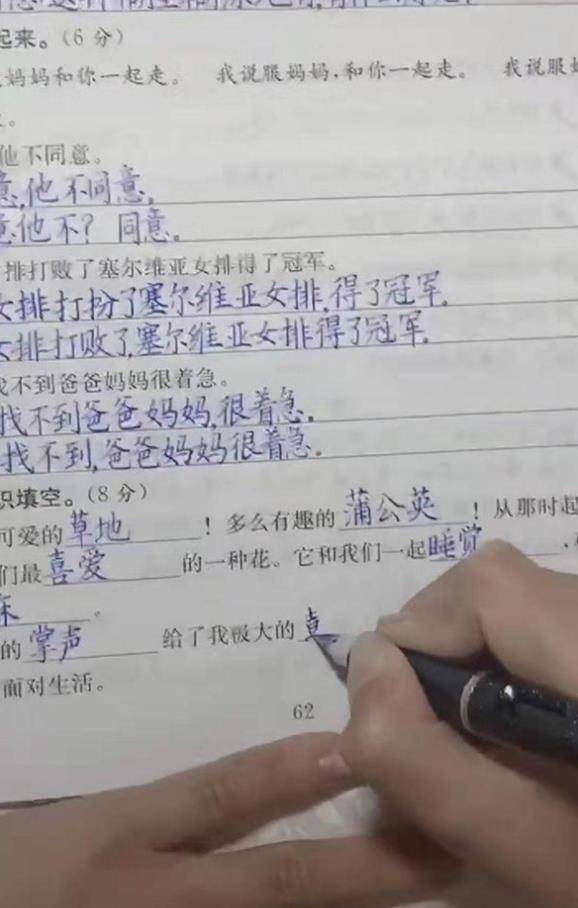 起来。(6 分)
妈妈和你一起走。 我说服妈妈,和你一起走。 我说服妈
他不同意。
意,他不同意。
意他不? 同意。
排打败了塞尔维亚女排得了冠军。
女排打扮了塞尔维亚女排,得了冠军。
女排打败了,塞尔维亚女排得了冠军。
找不到爸爸妈妈很着急。
找不到爸爸妈妈,很着急。
找不到,爸爸妈妈很着急。
识填空。(8 分)
可爱的草地！多么有趣的蒲公英！从那时起
们最喜爱的一种花。它和我们一起睡觉,
。
的掌声给了我极大的
面对生活。
62